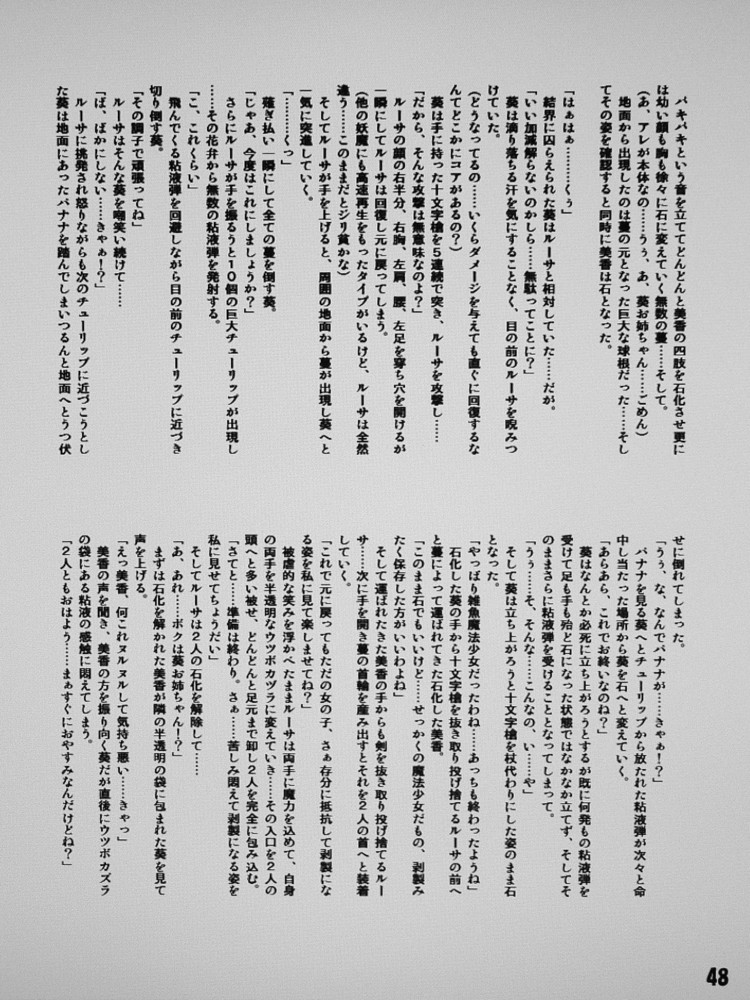 パキパキという音を立ててどんどんと美香の四肢を石化させ更に
は幼い顔も胸も徐々に石に変えていく無数の蔓……そして。
(あ、アレが本体なの……うぅ、あ、葵お姉ちゃん……ごめん)
地面から出現したのは蔓の元となった巨大な球根だった……そし
てその姿を確認すると同時に美香は石となった。
「はぁはぁ…………くぅ」
結界に囚らえられた葵はルーサと相対していた……だが。
「いい加減解らないのかしら……無駄ってことに?」
葵は滴り落ちる汗を気にすることなく、目の前のルーサを睨みつ
けていた。
(どうなってるの……いくらダメージを与えても直ぐに回復するな
んてどこかにコアがあるの?)
葵は手に持った十文字槍を5連続で突き、ルーサを攻撃し……
「だから、そんな攻撃は無意味なのよ?」
ルーサの顔の右半分、右胸、左肩、腰、左足を穿ち穴を開けるが
一瞬にしてルーサは回復し元に戻ってしまう。
(他の妖魔にも高速再生をもったタイプがいるけど、ルーサは全然
違う……このままだとジリ貧かな)
そしてルーサが手を上げると、周囲の地面から蔓が出現し葵へと
一気に突進していく。
「…………くっ」
薙ぎ払い一瞬にして全ての蔓を倒す葵。
「じゃあ、今度はこれにしましょうか?」
さらにルーサが手を振るうと10個の巨大チューリップが出現し
……その花弁から無数の粘液弾を発射する。
「こ、これくらい」
飛んでくる粘液弾を回避しながら目の前のチューリップに近づき
切り倒す葵。
「その調子で頑張ってね」
ルーサはそんな葵を嘲笑い続けて……
「ば、ばかにしない……きゃぁ!?」
ルーサに挑発され怒りながらも次のチューリップに近づこうとし
た葵は地面にあったバナナを踏んでしまいつるんと地面へとうつ伏
せに倒れてしまった。
「うぅ、な、なんでバナナが……きゃぁ!?」
バナナを見る葵へとチューリップから放たれた粘液弾が次々と命
中し当たった場所から葵を石へと変えていく。
「あらあら、これでお終いなのね?」
葵はなんとか必死に立ち上がろうとするが既に何発もの粘液弾を
受けて足も手も殆ど石になった状態ではなかなか立てず、そしてそ
のままさらに粘液弾を受けることとなってしまって。
「うぅ……そ、そんな……こんなの、い……や」
そして葵は立ち上がろうと十文字槍を杖代わりにした姿のまま石
となった。
「やっぱり雑魚魔法少女だったわね……あっちも終わったようね」
石化した葵の手から十文字槍を抜き取り投げ捨てるルーサの前へ
と蔓によって運ばれてきた石化した美香。
「このまま石でもいいけど……せっかくの魔法少女だもの、剥製み
たく保存した方がいいわよね」
そして運ばれたきた美香の手からも剣を抜き取り投げ捨てるルー
サ……次に手を開き蔓の首輪を産み出すとそれを2人の首へと装着
していく。
「これで元に戻ってもただの女の子、さぁ存分に抵抗して剥製にな
る姿を私に見て楽しませてね?」
被虐的な笑みを浮かべたままルーサは両手に魔力を込めて、自身
の両手を半透明なウツボカヅラに変えていき……その入口を2人の
頭へと多い被せ、どんどんと足元まで卸し2人を完全に包み込む。
「さてと……準備は終わり。さぁ……苦しみ悶えて剥製になる姿を
私に見せてちょうだい」
そしてルーサは2人の石化を解除して……
「あ、あれ……ボクは葵お姉ちゃん!?」
まずは石化を解かれた美香が隣の半透明の袋に包まれた葵を見て
声を上げる。
「えっ美香、何これヌルヌルして気持ち悪い……きゃっ」
美香の声を聞き、美香の方を振り向く葵だが直後にウツボカズラ
の袋にある粘液の感触に悶えてしまう。
「2人ともおはよう……まぁすぐにおやすみなんだけどね?」
48